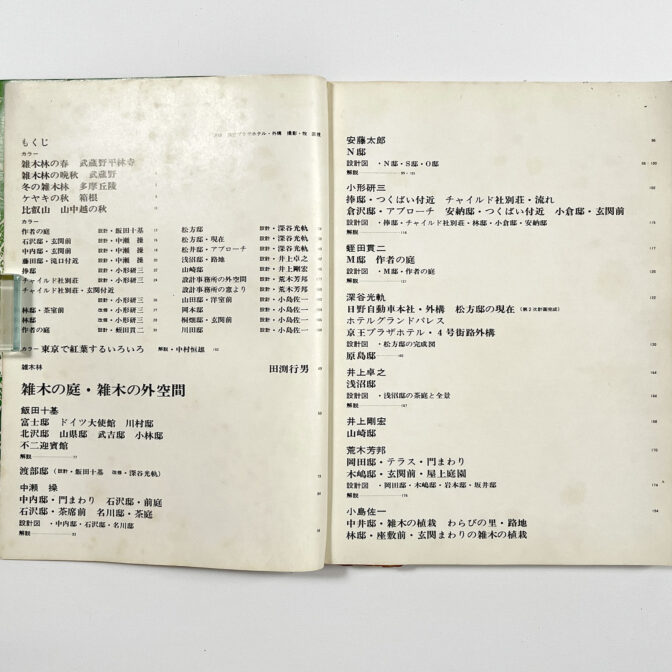 もくじ
カラー
雑木林の春　武蔵野平林寺
雑木林の晩秋　武蔵野
冬の雑木林　多摩丘陵
ケヤキの秋　箱根
比叡山　山中越の秋
カラー
作者の庭　設計・飯田十基
石沢邸・玄関前　設計・中瀬　操
中内邸・玄関前　設計・中瀬　操
藤田邸・滝口付近　設計・中瀬　操
捧邸　設計・小形研三
チャイルド社別荘　設計・小形研三
チャイルド社別荘・玄関付近
設計・小形研三
林邸・茶室前　改修・小形研三
林邸　改修・小形研三
作者の庭　設計・蛭田貫二
松方邸　設計・深谷光軌
松方邸・現在　設計・深谷光軌
松井邸・アプローチ　設計・深谷光軌
浅沼邸・路地　設計・井上卓之
山崎邸　設計・井上剛宏
設計事務所の外空間　設計・荒木芳邦
設計事務所の窓より　設計・荒木芳邦
山田邸・洋室前　設計・小島佐一
岡本邸　設計・小島佐一
桐畑邸・玄関前　設計・小島佐一
川田邸　設計・小島佐一
カラー 東京で紅葉するいろいろ　解説・中村恒雄
雑木林　田渕行男
雑木の庭・雑木の外空間
飯田十基
富士邸　ドイツ大使館　川村邸
北沢邸　山県邸　武吉邸　小林邸
不二迎賓館
解説
渡部邸（設計・飯田十基　改修・深谷光軌）
中瀬　操
中内邸・門まわり　石沢邸・前庭
石沢邸・茶席前　名川邸・茶庭
設計図　・中内邸・石沢邸・名川邸
解説
安藤太郎
N邸
設計図　・N邸・S邸・O邸
解説
小形研三
捧邸・つくばい付近　チャイルド社別荘・流れ
倉沢邸・アプローチ　安納邸・つくばい付近　小倉邸・玄関前
設計図　・捧邸・チャイルド社別荘・林邸・小倉邸・安納邸
解説
蛭田貫二
M邸　作者の庭
設計図　・M邸・作者の庭
解説
深谷光軌
日野自動車本社・外構　松方邸の現在（第2次計画完成）
ホテルグランドパレス
京王プラザホテル・4号街路外構
設計図　・松方邸の完成図
原島邸
井上卓之
浅沼邸
設計図　・浅沼邸の茶庭と全景
解説
井上剛宏
山崎邸
荒木芳邦
岡田邸・テラス・門まわり
木嶋邸・玄関前・屋上庭園
設計図　・岡田邸・木嶋邸・岩本邸・坂井邸
解説
小島佐一
中井邸・雑木の植栽　わらびの里・路地
林邸・座敷前・玄関まわりの雑木の植栽